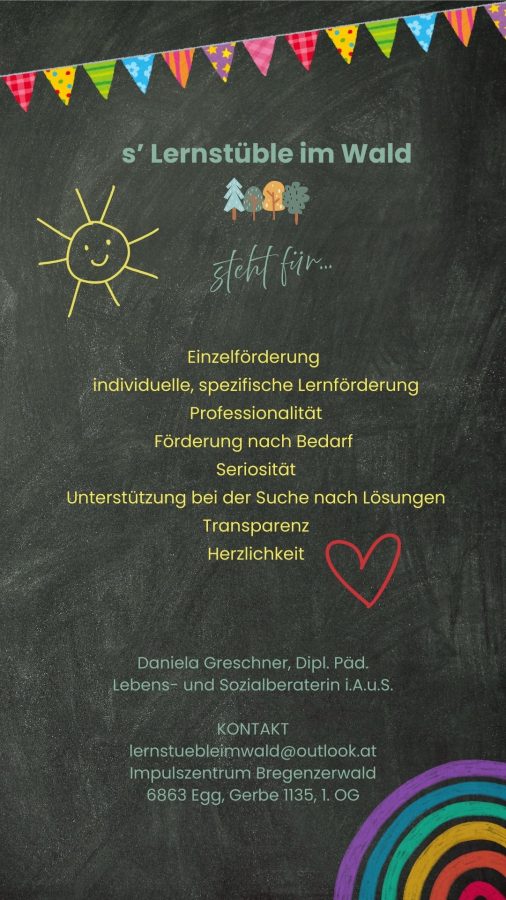 s' Lernstüble im Wald
steht für...
Einzelförderung
individuelle, spezifische Lernförderung
Professionalität
Förderung nach Bedarf
Seriosität
Unterstützung bei der Suche nach Lösungen
Transparenz
Herzlichkeit
Daniela Greschner, Dipl. Päd.
Lebens- und Sozialberaterin i.A.u.S.
KONTAKT
lernstuebleimwald@outlook.at
Impulszentrum Bregenzerwald
6863 Egg, Gerbe 1135, 1. OG